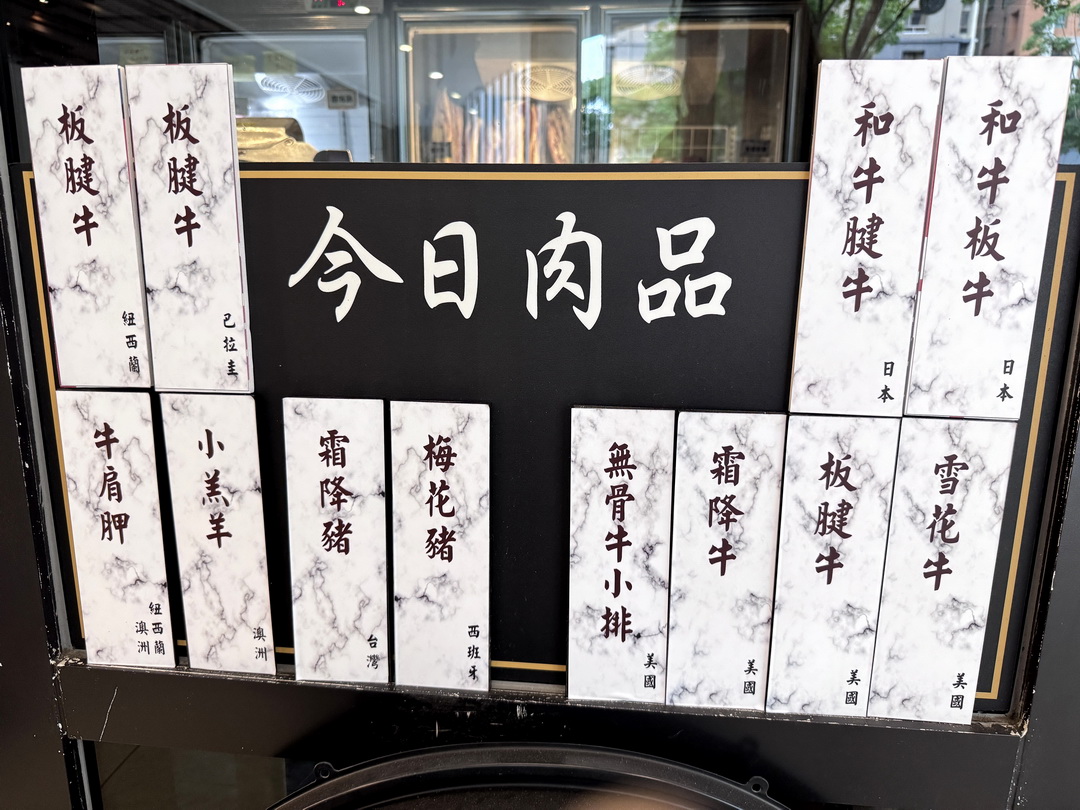 今日肉品
板腱牛
紐西蘭
板腱牛
巴拉圭
和牛腱牛
日本
和牛板牛
日本
牛肩胛
紐西蘭
澳洲
小羔羊
澳洲
霜降豬
台灣
梅花豬
西班牙
無骨牛小排
美國
霜降牛
美國
板腱牛
美國
雪花牛
美國